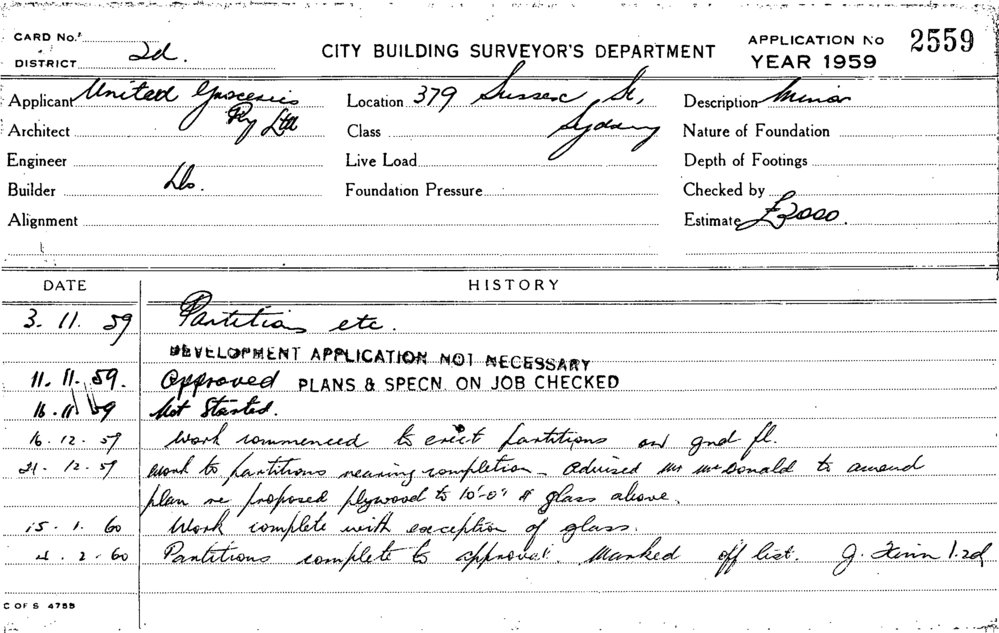 CARD No.
DISTRICT 2d.
CITY BUILDING SURVEYOR'S DEPARTMENT
APPLICATION No 2559
YEAR 1959
Applicant United Groceries Pty Ltd
Location 379 Sussex St, Sydney
Description Minor
Architect
Class
Nature of Foundation
Engineer
Live Load
Depth of Footings
Builder Do.
Foundation Pressure
Checked by
Alignment
Estimate £2000.
DATE HISTORY
3. 11. 59 Partitions etc.
DEVELOPMENT APPLICATION NOT NECESSARY
11. 11. 59. Approved PLANS & SPECN. ON JOB CHECKED
16. 11 59 Not Started.
16. 12. 59 Work commenced to erect partitions on gnd fl.
21. 12. 59 Work to partitions nearing completion - advised Mr McDonald to amend
plan re proposed plywood to 10'-0" & glass above.
15. 1. 60 Work complete with exception of glass.
4. 2. 60 Partitions complete to approval. Marked off list. J. 2d
C OF S 4755